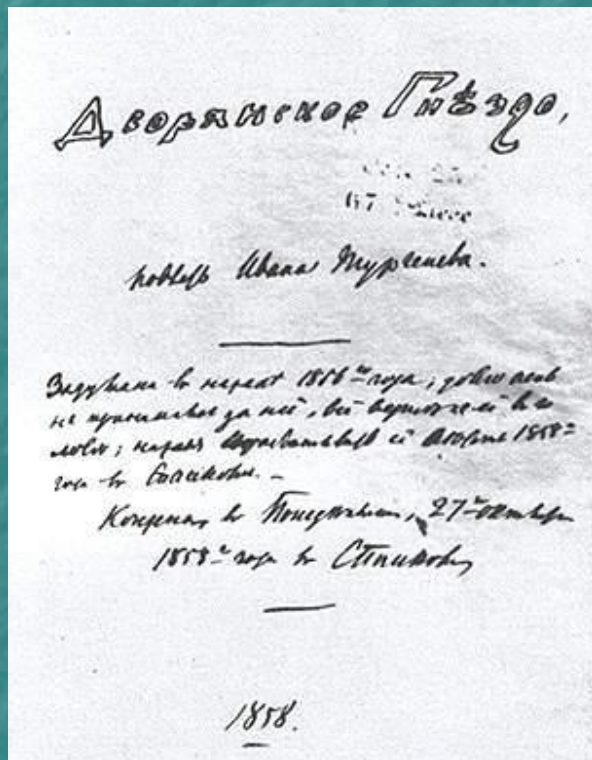 Дворянское Гнѣздо,
повѣсть Ивана Тургенева.
Задумана въ началѣ 1856го года; долго
не принимался за неё, всё вертѣлъ её въ го
ловѣ; началъ её 1858го
года въ Спасскомъ. –
Кончена въ Понедѣльникъ, 27го октября
1858го года въ Спасскомъ
1858.